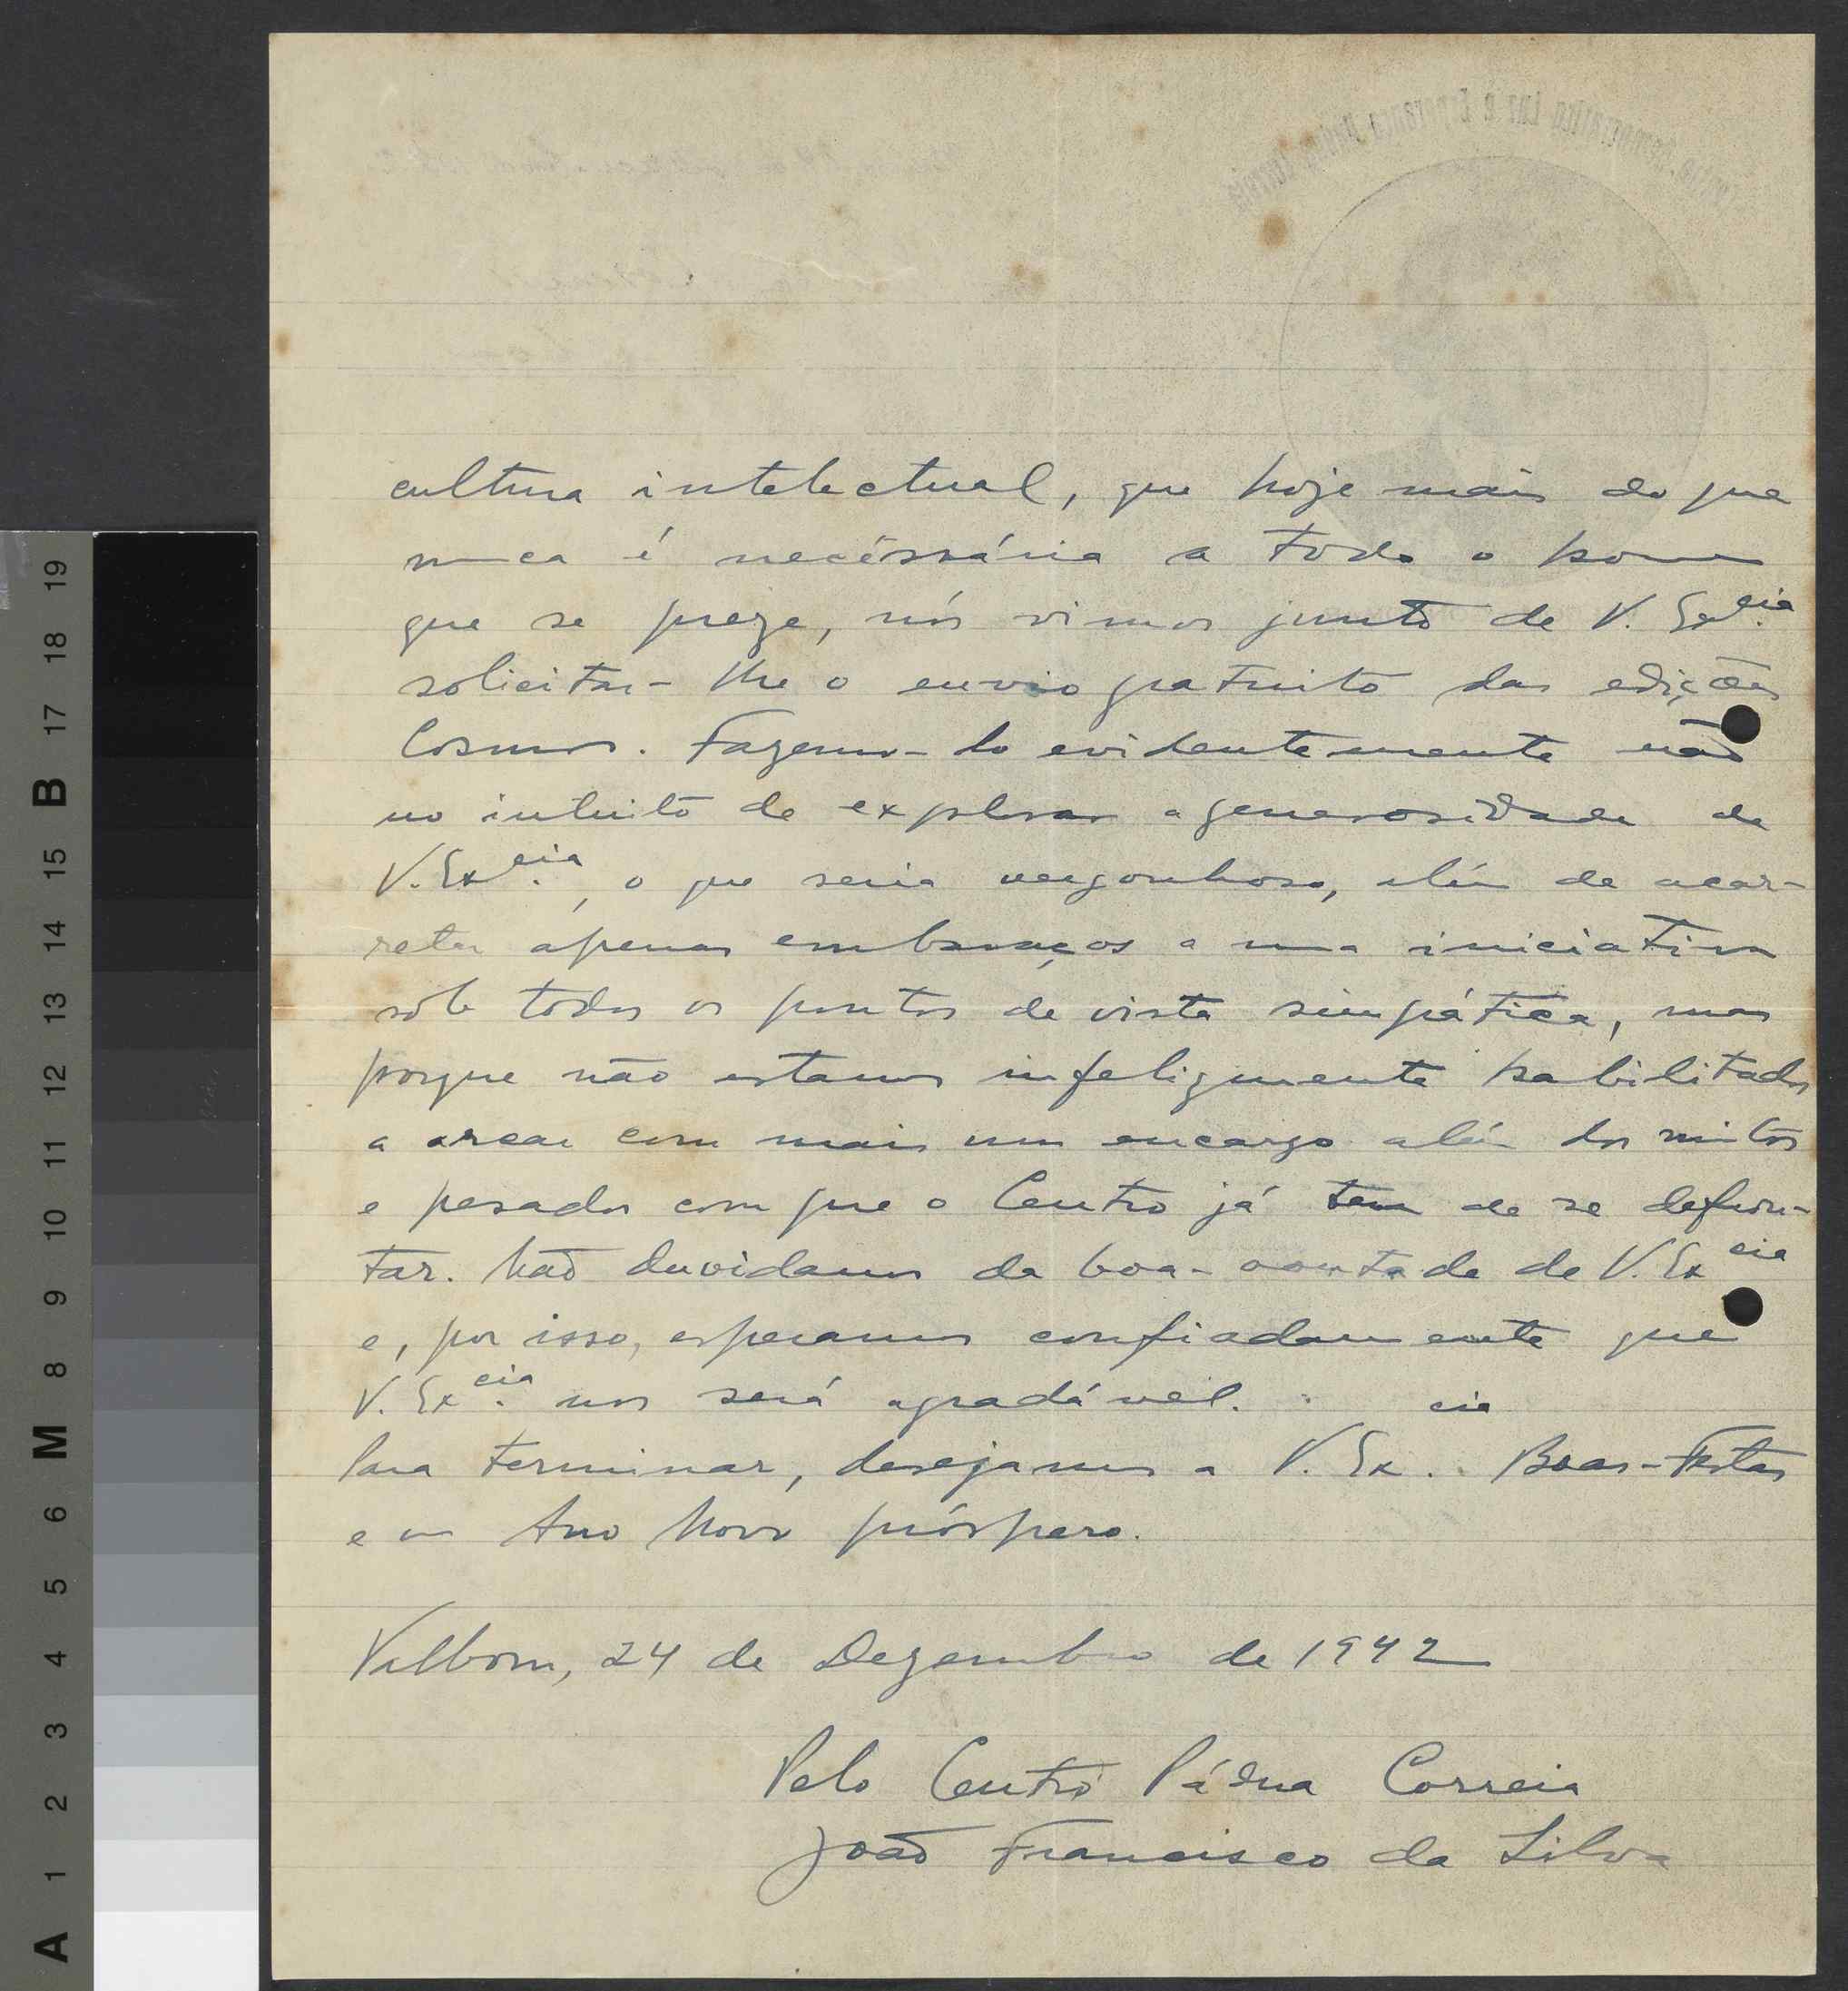 cultura intelectual, que hoje mais do que
nunca é necéssária a todo o homem
que se preze, nós vimos junto de V. Ex.cia
solicitar-lhe o envio gratuito das edições
Cosmos. Fazemo-lo evidentemente não
no intuito de explorar a generosidade de
V. Ex.cia, o que seria vergonhoso, além de acar-
retar apenas embaraços a uma iniciativa
sob todos os pontos de vista simpática, mas
porque não estamos infelizmente habilitados
a arcar com mais um encargo além dos muitos
e pesados com que o Centro já tem de se defron-
tar. Não duvidamos da boa-vontade de V. Ex cia
e, por isso, esperamos confiadamente que
V. Ex.cia nos será agradável.
Para terminar, desejamos a V. Ex.cia Boas-Festas
e um Ano Novo próspero.
Valbom, 24 de Dezembro de 1942
Pelo Centro Pádua Correia
João Francisco da Silva